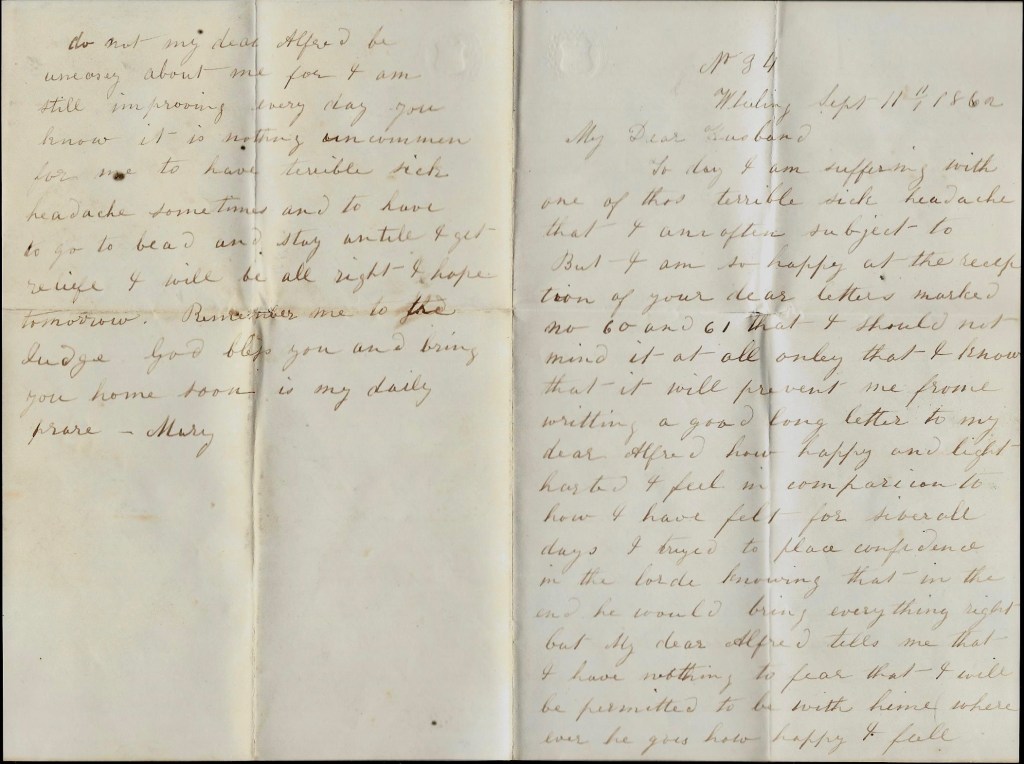 do not my dear Alfred be
uneasy about me for I am
still improving every day you
know it is nothing uncommen
for me to have terrible sick
headache sometimes and to have
to go to bead and stay untill I get
reliefe I will be all right I hope
tomorrow. Remember me to the
Judge God bless you and bring
you home soon is my daily
prare – Mary
No 34
Wheling Sept 11th 1862
My Dear Husband
To day I am suffering with
one of thos terrible sick headache
that I am often subject to
But I am so happy at the recep
tion of your dear letters marked
no 60 and 61 that I should not
mind it at all onley that I know
that it will prevent me frome
writting a good long letter to my
dear Alfred how happy and light
harted I feel in comparison to
how I have felt for siverall
days I tryed to place confidence
in the lorde knowing that in the
end he would bring everything right
but My dear Alfred tells me that
I have nothing to fear that I will
be permitted to be with hime where
ever he goes how happy I feell